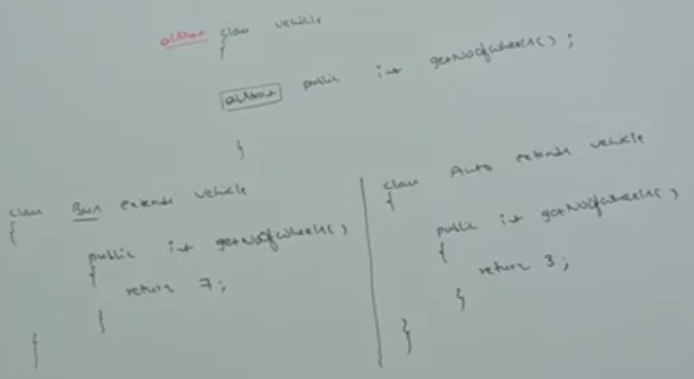 abstract class Vehicle
{
abstract public int getNoOfWheels();
}
class Bus extends Vehicle
{
public int getNoOfWheels()
{
return 7;
}
}
class Auto extends Vehicle
{
public int getNoOfWheels()
{
return 3;
}
}